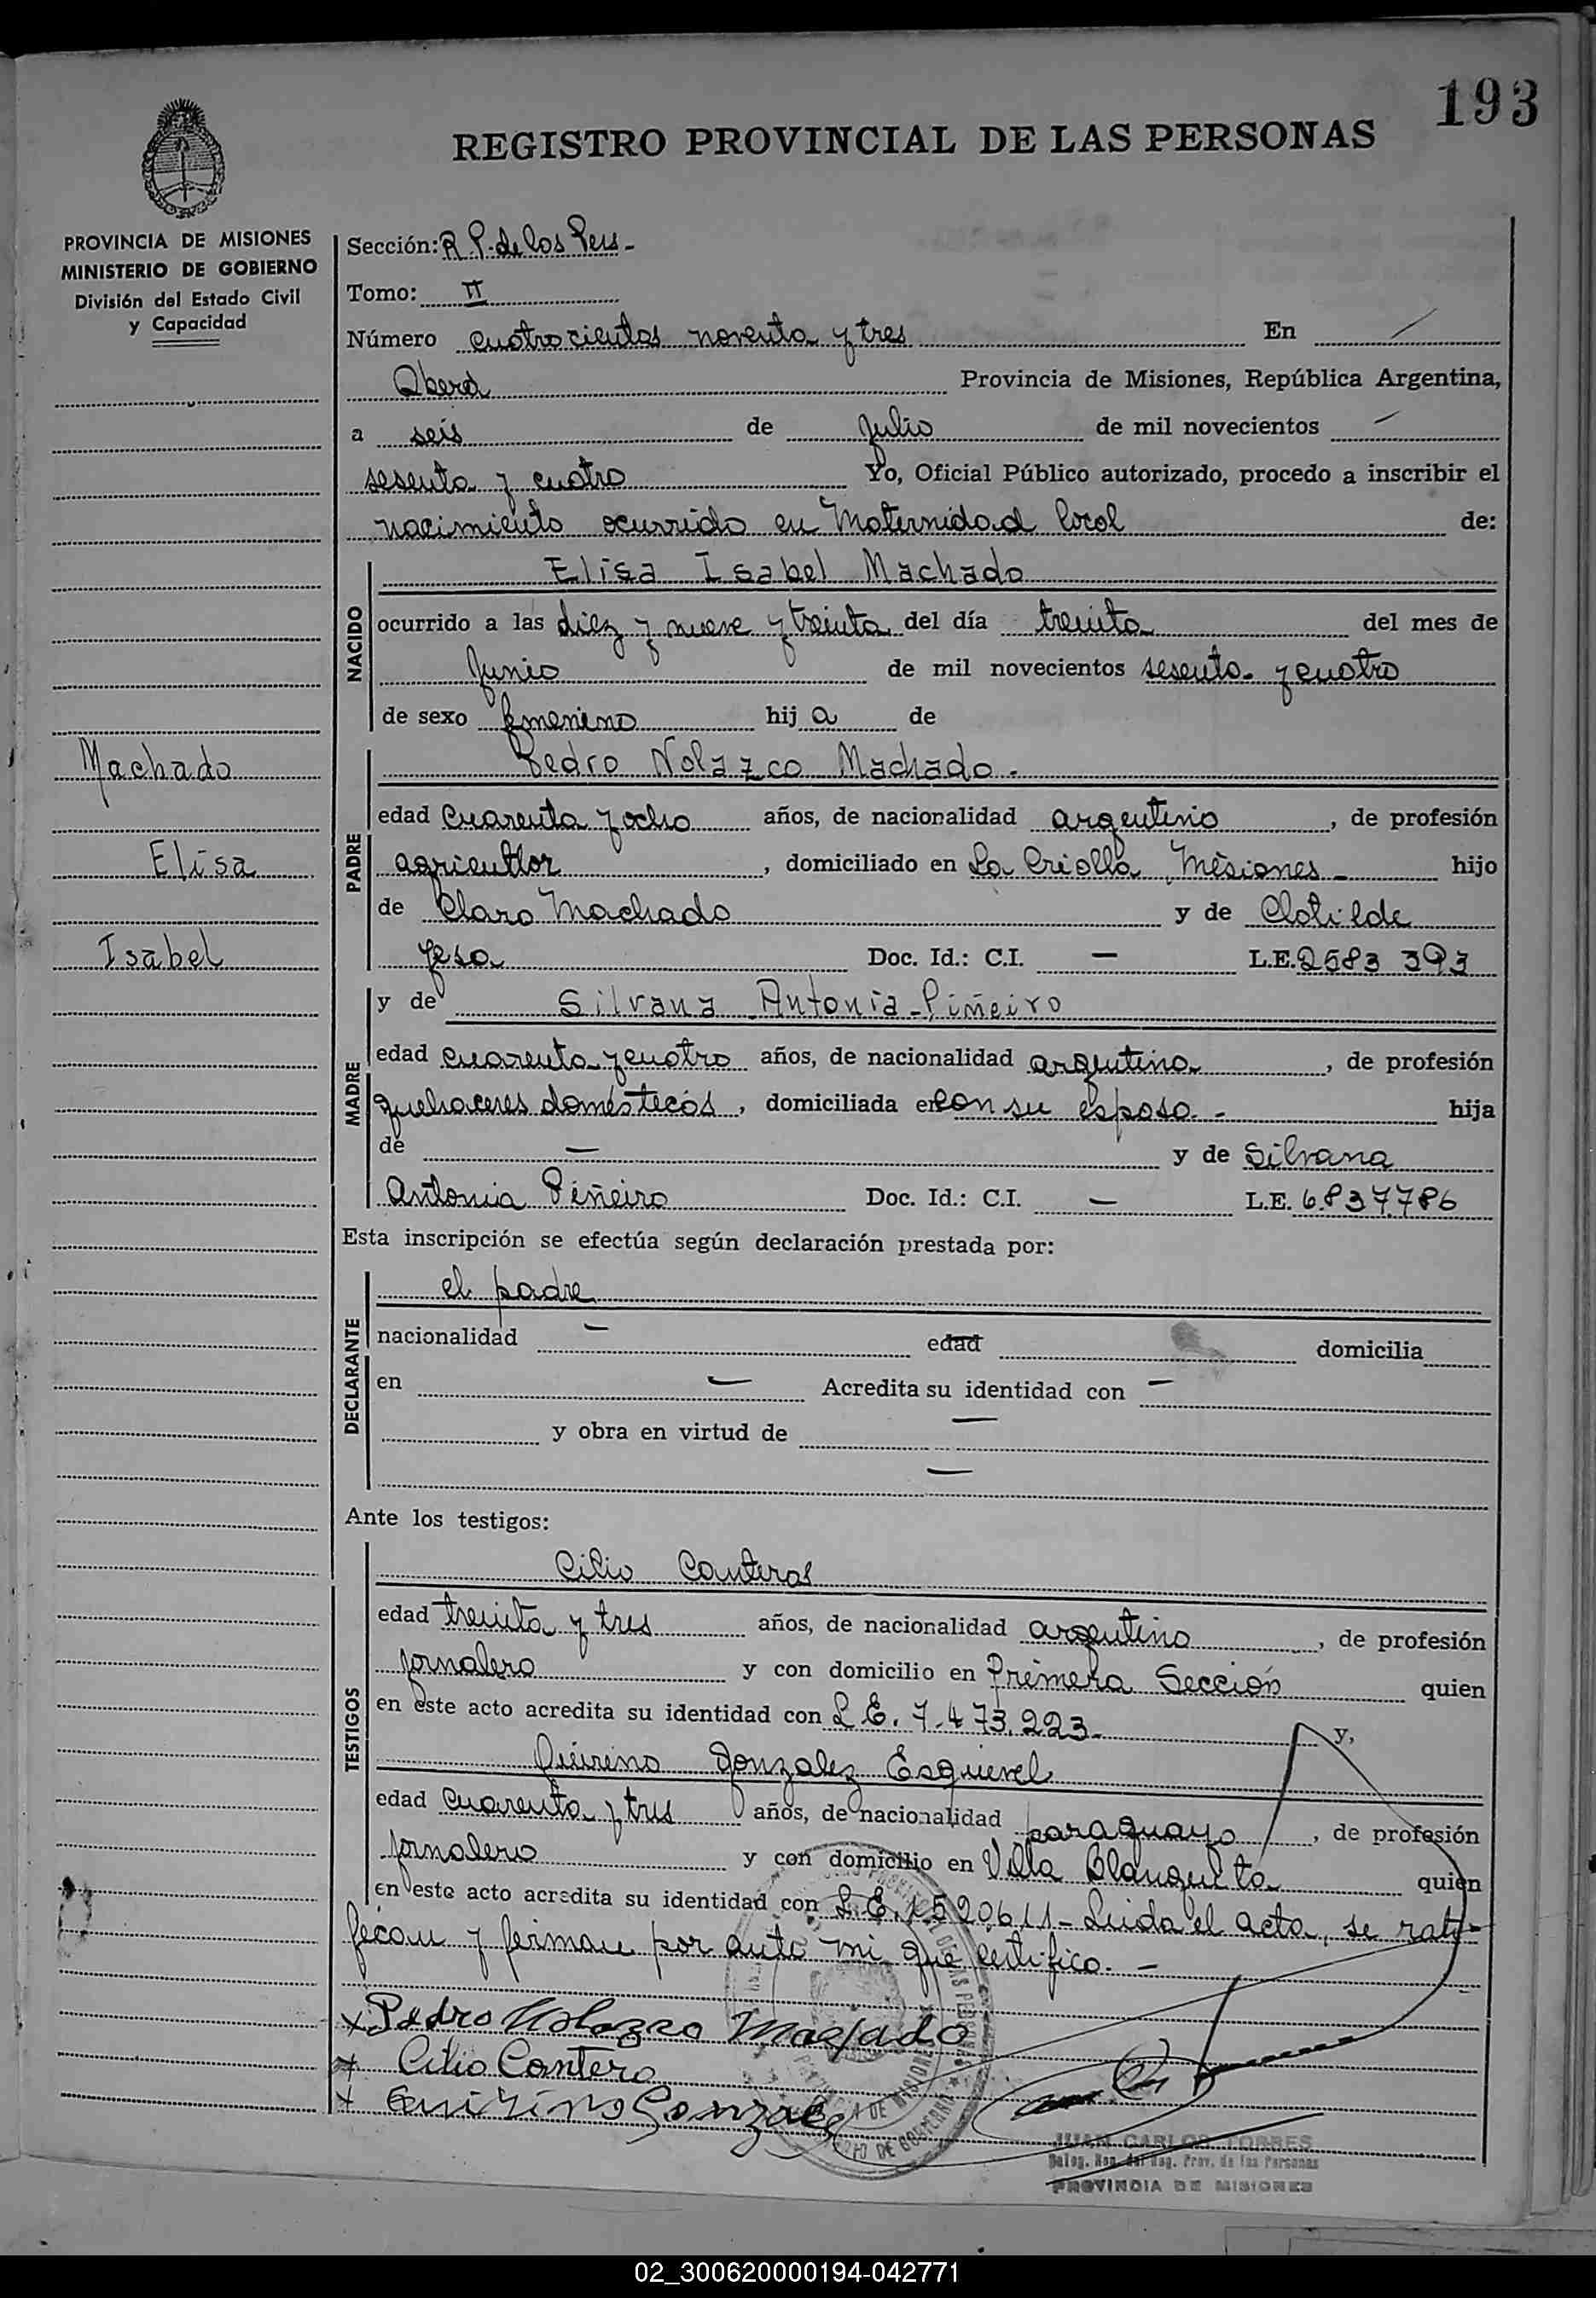 193
REGISTRO PROVINCIAL DE LAS PERSONAS
PROVINCIA DE MISIONES
MINISTERIO DE GOBIERNO
División del Estado Civil
y Capacidad
Machado
Elisa
Isabel
Sección: R. P. de los Pers -
Tomo: II
Número cuatrocientos noventa y tres En /
Oberá Provincia de Misiones, República Argentina,
a seis de Julio de mil novecientos -
sesenta y cuatro Yo, Oficial Público autorizado, procedo a inscribir el
nacimiento ocurrido en Maternidad local de:
NACIDO
Elisa Isabel Machado
ocurrido a las diez y nueve y treinta del día treinta del mes de
Junio de mil novecientos sesenta y cuatro
de sexo femenino hija de
PADRE
Pedro Nolazco Machado -
edad cuarenta y ocho años, de nacionalidad argentino, de profesión
agricultor, domiciliado en La Criolla, Misiones - hijo
de Claro Machado y de Clotilde
Doc. Id.: C.I. - L.E. 2583 393
MADRE
y de Silvana Antonia Piñeiro
edad cuarenta y cuatro años, de nacionalidad argentina, de profesión
quehaceres domésticos, domiciliada en con su esposo. - hija
de - y de Silvana
Antonia Piñeiro Doc. Id.: C.I. - L.E. 6.837.786
Esta inscripción se efectúa según declaración prestada por:
DECLARANTE
el padre
nacionalidad - edad domicilia
en - Acredita su identidad con -
y obra en virtud de -
-
Ante los testigos:
TESTIGOS
Cilio Canteros
edad treinta y tres años, de nacionalidad argentino, de profesión
jornalero y con domicilio en Primera Sección quien
en este acto acredita su identidad con L.E. 7.473.223- y,
Quirino Gonzalez Esquivel
edad cuarenta y tres años, de nacionalidad paraguayo, de profesión
jornalero y con domicilio en Villa Blanquita quien
en este acto acredita su identidad con L.E. 1520611 - Leida el acta, se rati-
fican y firman por ante mi que certifico. -
x Pedro Nolazco Machado
x Cilio Cantero
x Quirino Gonzalez
JUAN CARLOS TORRES
Deleg. Reg. del Reg. Prov. de las Personas
PROVINCIA DE MISIONES
02_300620000194-042771